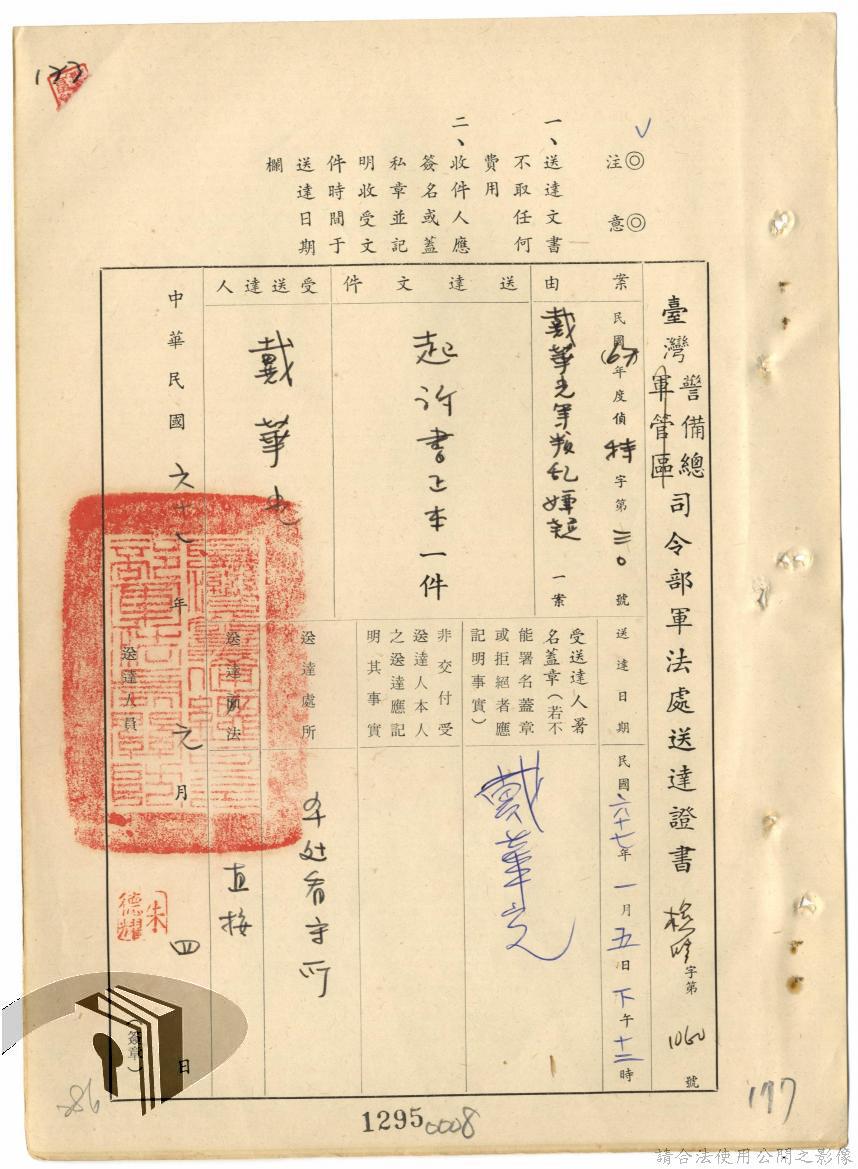 177
◎注意◎
一、送達文書
不取任何
費用
二、收件人應
簽名或蓋
私章並記
明收受文
件時間于
送達日期
欄
臺灣警備總司令部軍法處送達證書
軍管區
字第1060號
案由
民國(67)年度偵特字第三〇號
戴華光等叛乱嫌疑一案
送達文件
起訴書正本一件
受送達人
戴華光
中華民國六十七年元月四日
送達日期
民國六十七年一月五日下午十二時
受送達人署
名蓋章(若不
能署名蓋章
或拒絕者應
記明事實)
戴華光
非交付受
送達人本人
之送達應記
明其事實
送達處所
本处看守所
送達方法
直接
送達人員
朱德耀
(簽章)
286
12950008
177
請合法使用公開之影像